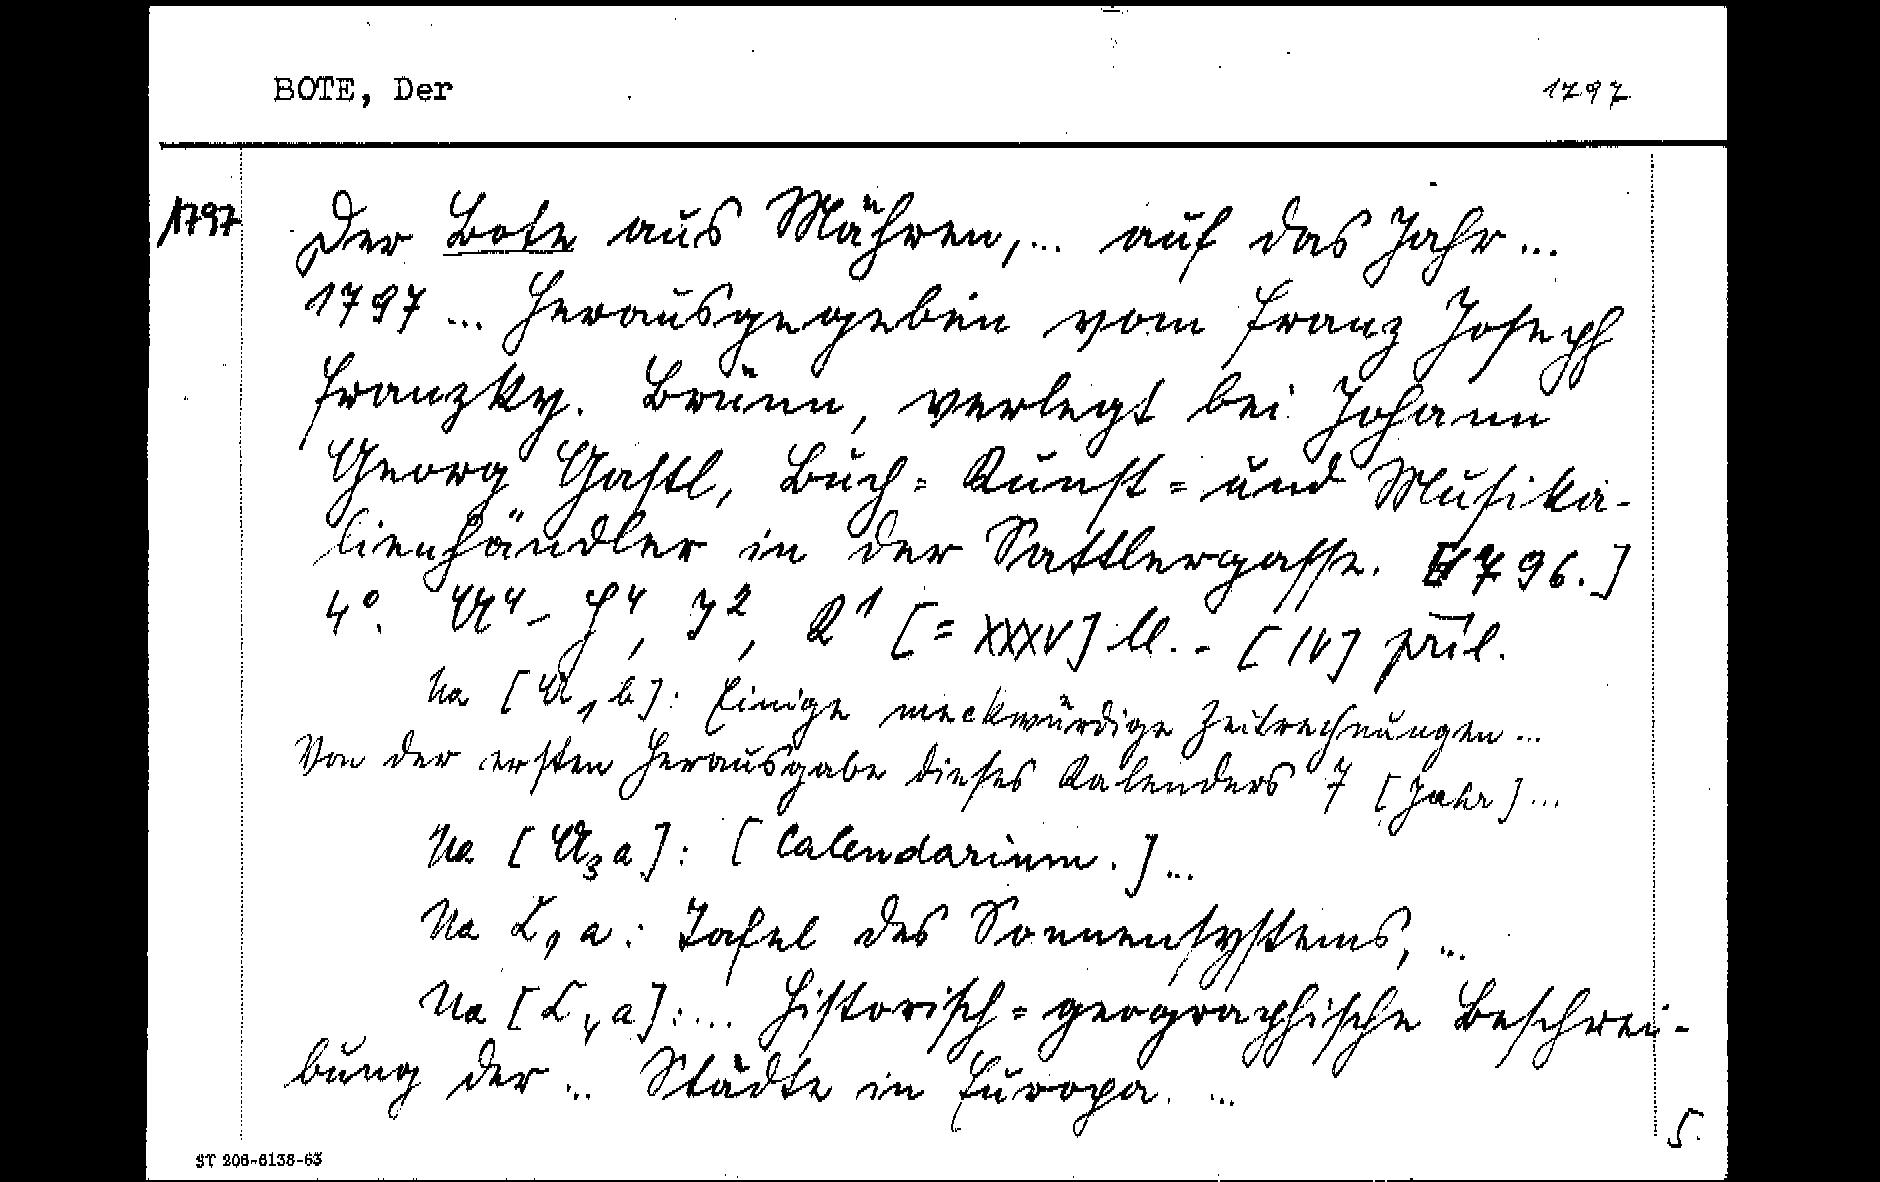 BOTE, Der 1797
1797 Der Bote aus Mähren, ... auf das Jahr ...
1797 ... Herausgegeben vom Franz Joseph
Franzky. Brünn, verlegt bei Johann
Georg Gastl, Buch= Kunst= und Musika-
lienhändler in der Sattlergasse. [1796.]
4°. A⁴ - H⁴, J², K¹ [= XXXV] ll. - [IV] příl.
Na [A₁b]: Einige merkwürdige Zeitrechnungen ...
Von der ersten Herausgabe dieses Kalenders 7 [Jahr] ...
Na [A₃a]: [Calendarium.] ...
Na C₁a: Tafel des Sonnensystems, ...
Na [C₄a]: ... Historisch= geographische Beschrei-
bung der ... Städte in Europa. ...
5.
ST 206-6138-63